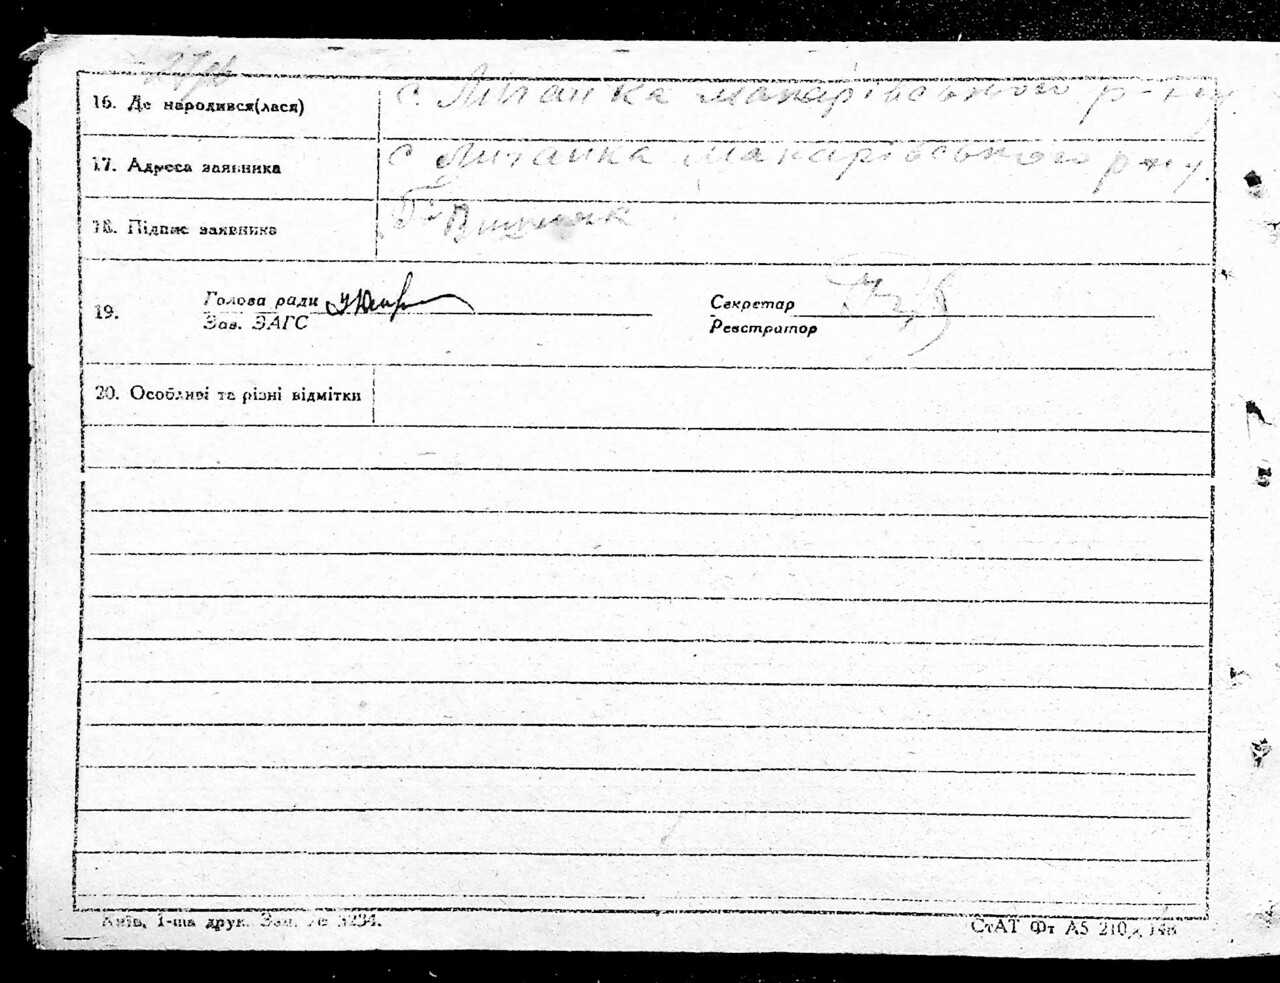 16. Де народився(лася) с. Личанка макарівського р-ну
17. Адреса заявника с Личанка макарівського р-ну.
18. Підпис заявника
19. Голова ради Секретар
Зав. ЗАГС Реєстратор
20. Особливі та різні відмітки
Київ, 1-ша друк. Зам. № 3234. СтАТ Фт А5 210 х 148